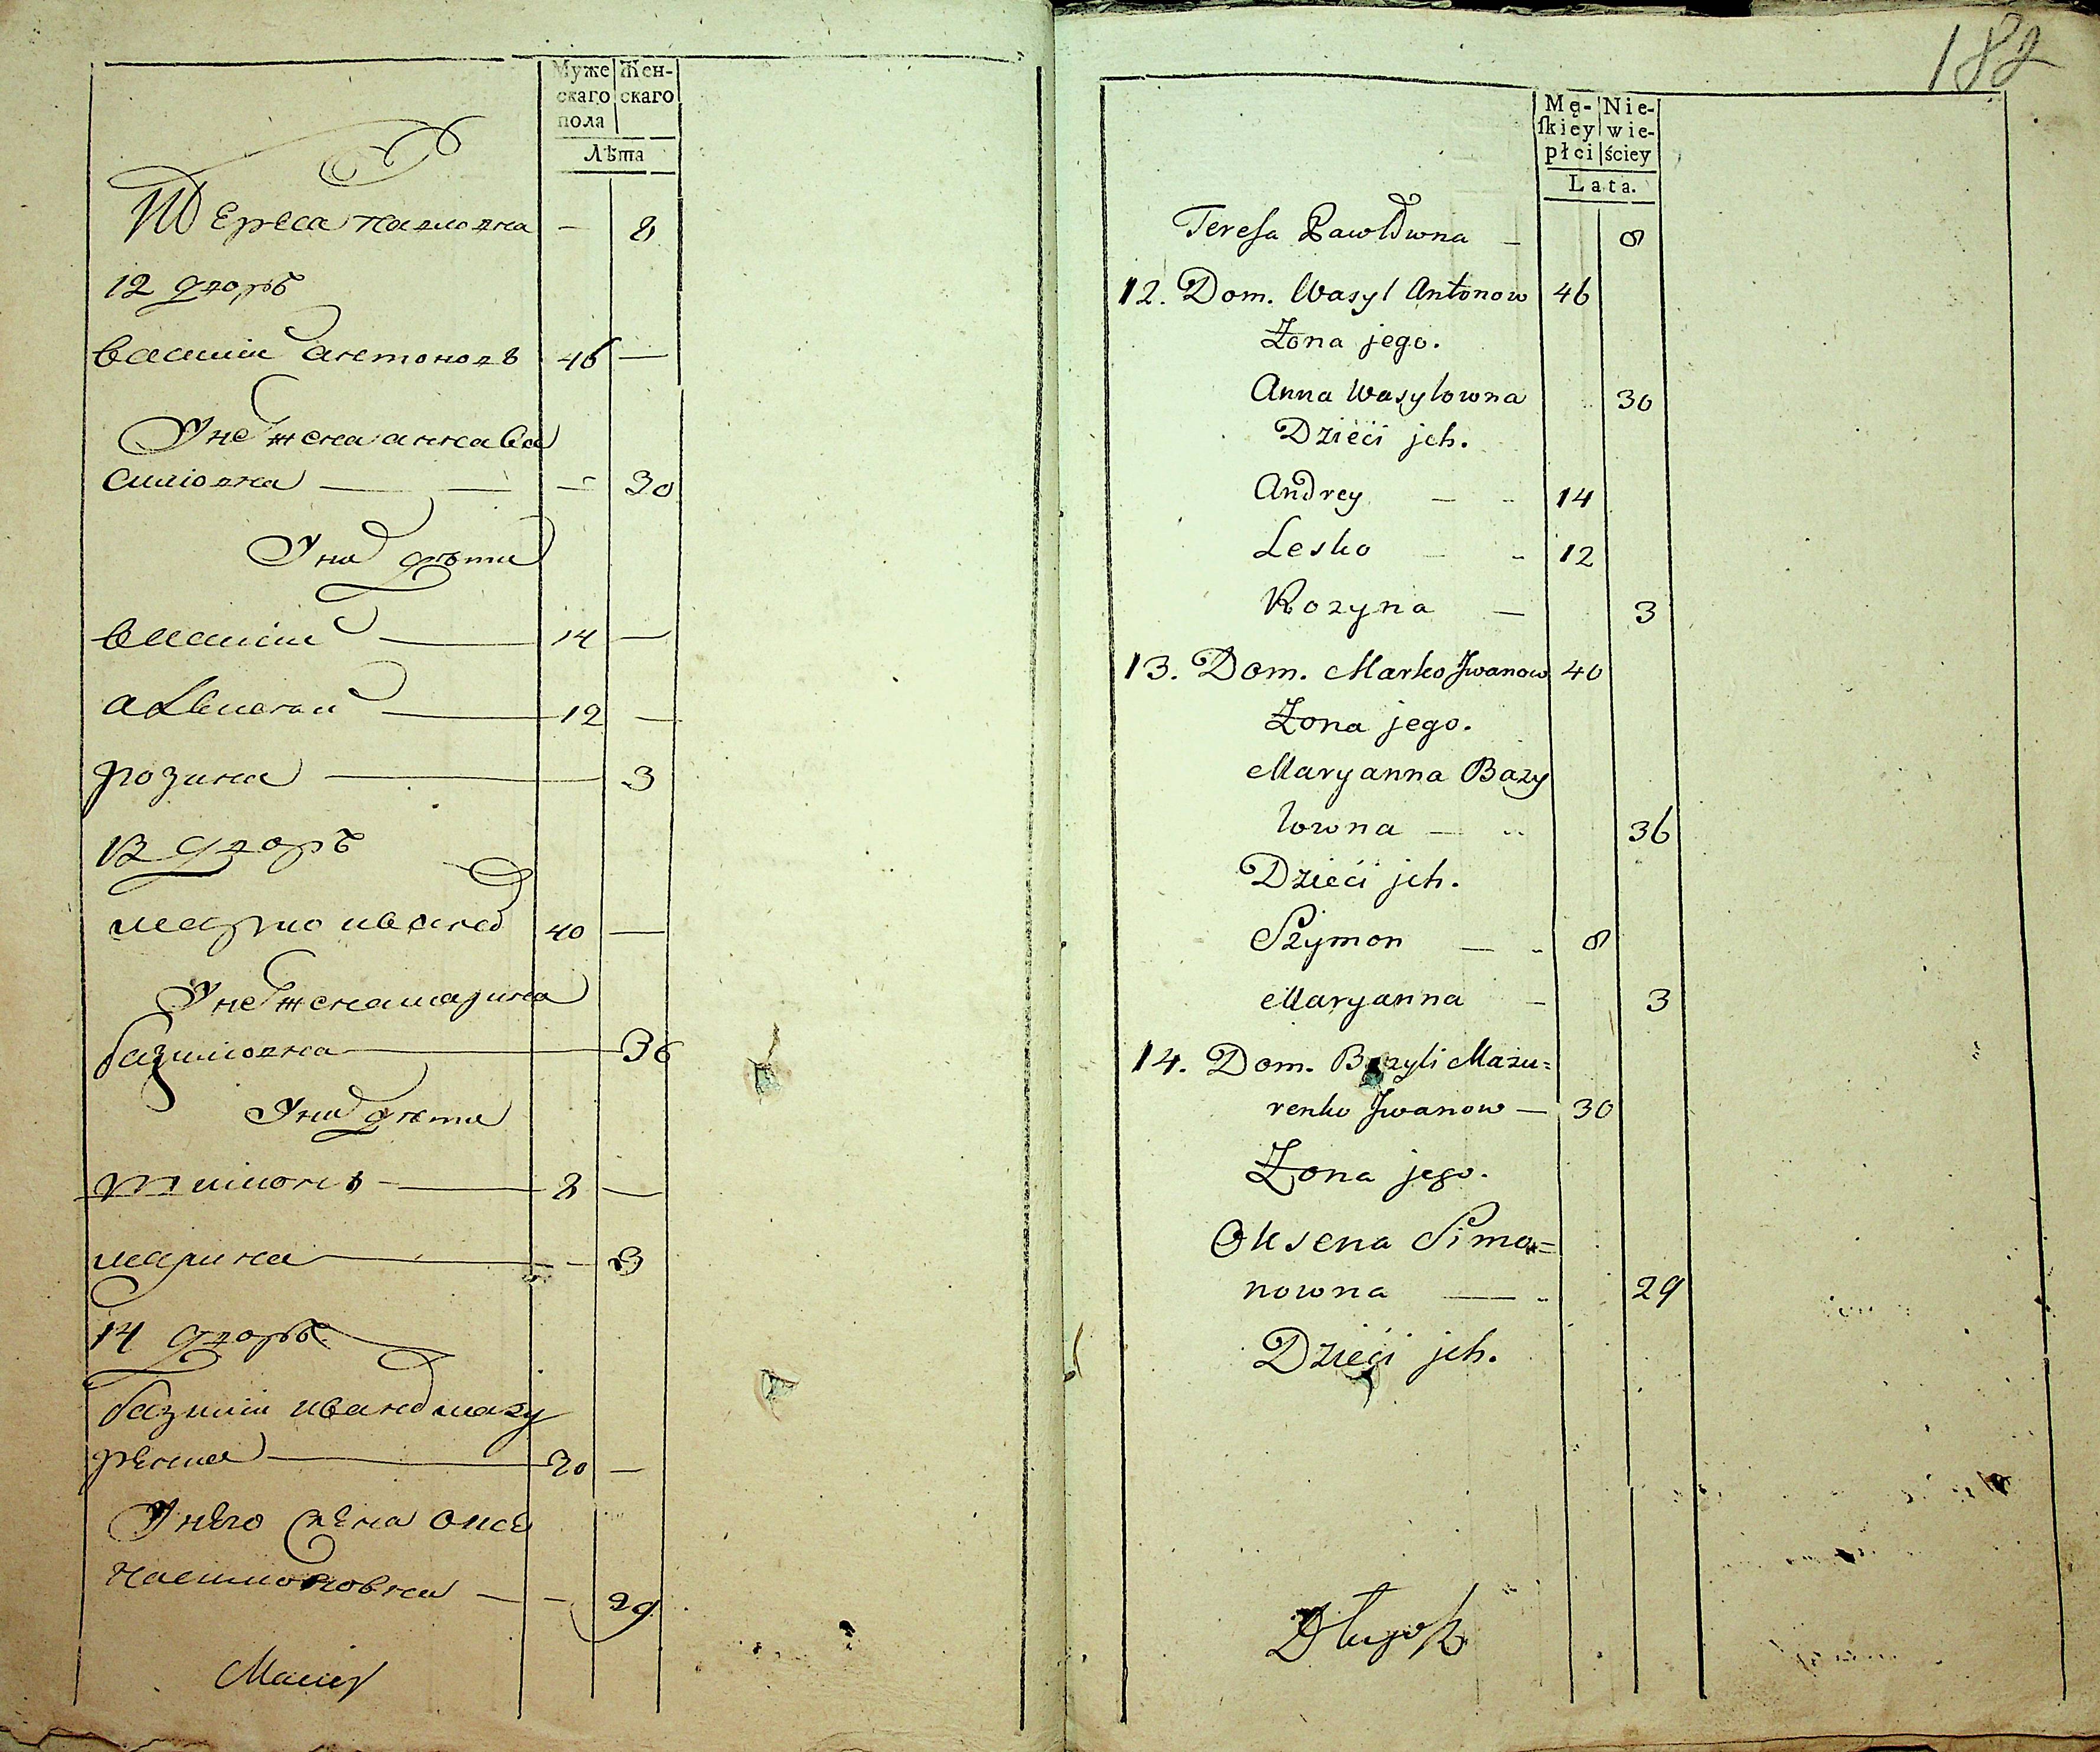 Муже
скаго
пола
Жен-
скаго
Лѣта
Тереса павловна — 8
12 дворъ
василий антоновъ 46 —
У не жена анна ва
силювна — — — 30
У них дѣти
василий — 14 —
алексей — 12 —
розина — 3
13 дворъ
марко иванов 40 —
У не жена марина
базиловна — 36
У них дѣти
шимонъ — 8 —
марина — — 3
14 дворъ
базилий иванов мазу
ренко — 30 —
У него жена оксе
на симоновна — — 29
Maciey
182
Mę-
ſkiey
płci
Nie-
wie-
ściey
Lata.
Teresa Pawlowna — 8
12. Dom. Wasyl Antonow 46
Żona jego.
Anna Wasylowna 30
Dzieci jch.
Andrey — 14
Lesko — 12
Rozyna — 3
13. Dom. Marko Jwanow 40
Żona jego.
Maryanna Bazy
lowna — 36
Dzieci jch.
Szymon — 8
Maryanna — 3
14. Dom. Bazyli Mazu=
renko Jwanow — 30
Żona jego.
Oksena Simo=
nowna — 29
Dzieci jch.